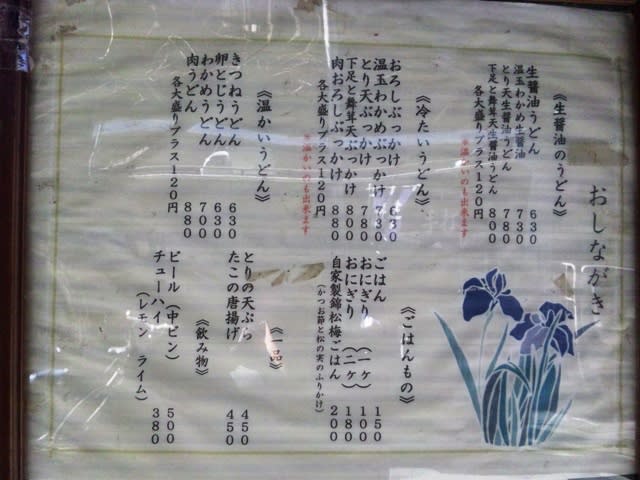 おしながき
《生醤油のうどん》
生醤油うどん 630
温玉わかめ生醤油 730
とり天生醤油うどん 780
下足と舞茸天生醤油うどん 800
各大盛りプラス120円
※温かいのも出来ます
《冷たいうどん》
おろしぶっかけ 630
温玉わかめぶっかけ 730
とり天ぶっかけ 780
下足と舞茸天ぶっかけ 800
肉おろしぶっかけ 880
各大盛りプラス120円
※温かいのも出来ます
《温かいうどん》
きつねうどん 630
卵とじうどん 630
わかめうどん 700
肉うどん 880
各大盛りプラス120円
《ごはんもの》
ごはん 150
おにぎり (一ヶ) 100
おにぎり (二ヶ) 180
自家製錦松梅ごはん 200
(かつお節と松の実のふりかけ)
《一品》
とりの天ぷら 450
たこの唐揚げ 450
《飲み物》
ビール (中ビン) 500
チューハイ 380
(レモン ライム)